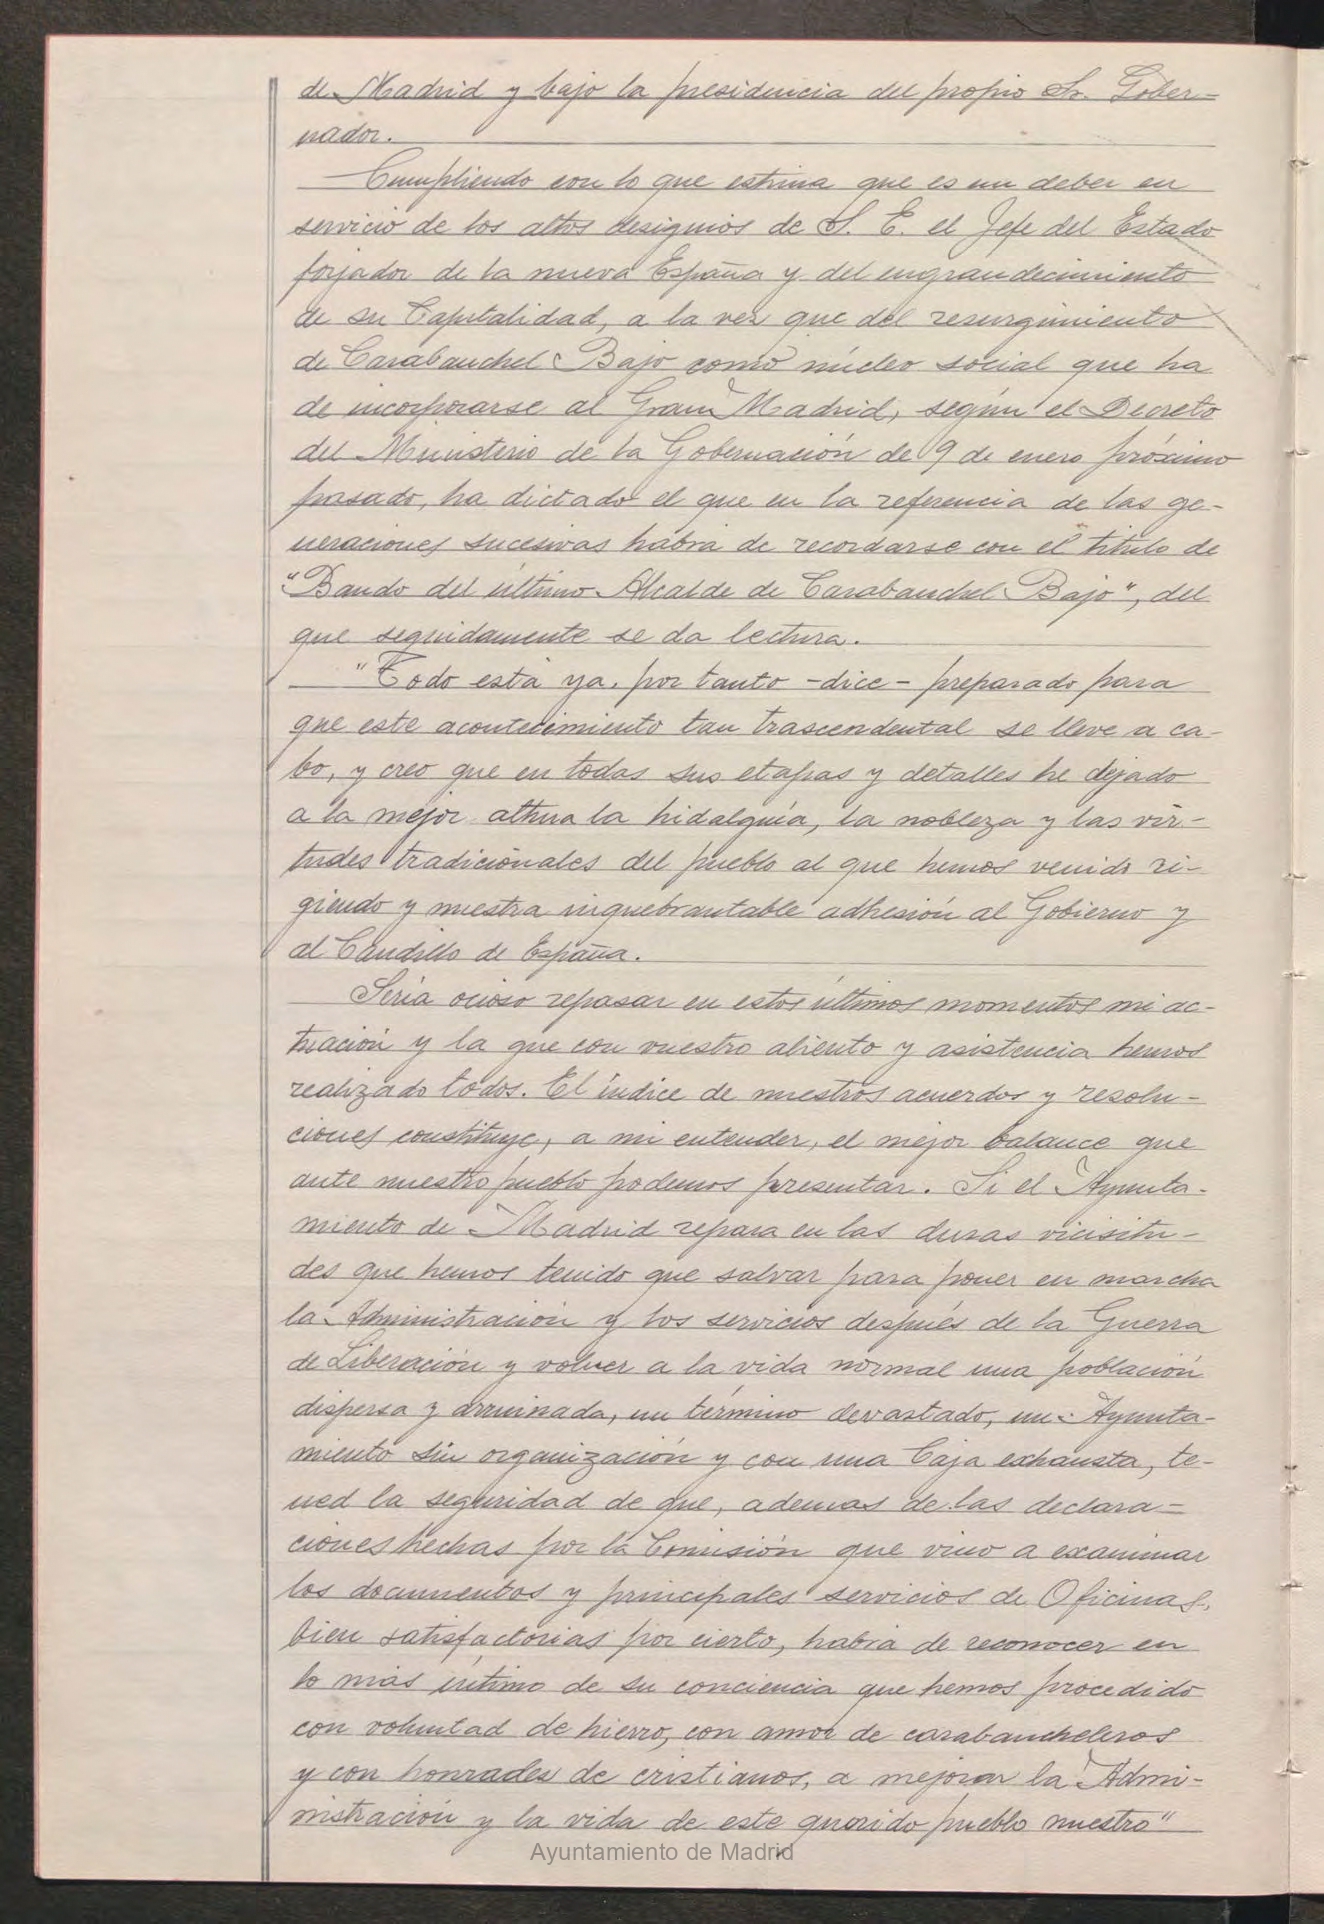 de Madrid y bajo la presidencia del propio Sr. Gober-
nador.
Cumpliendo con lo que estima que es un deber en
servicio de los altos designios de S. E. el Jefe del Estado
forjador de la nueva España y del engrandecimiento
de su Capitalidad, a la vez que del resurgimiento
de Carabanchel Bajo como núcleo social que ha
de incorporarse al Gran Madrid, según el Decreto
del Ministerio de la Gobernación de 9 de enero próximo
pasado, ha dictado el que en la referencia de las ge-
neraciones sucesivas habrá de recordarse con el título de
"Bando del último Alcalde de Carabanchel Bajo", del
que seguidamente se da lectura.
"Todo está ya, por tanto -dice- preparado para
que este acontecimiento tan trascendental se lleve a ca-
bo, y creo que en todas sus etapas y detalles he dejado
a la mejor altura la hidalguía, la nobleza y las vir-
tudes tradicionales del pueblo al que hemos venido ri-
giendo y nuestra inquebrantable adhesión al Gobierno y
al Caudillo de España.
Sería ocioso repasar en estos últimos momentos mi ac-
tuación y la que con vuestro aliento y asistencia hemos
realizado todos. El índice de nuestros acuerdos y resolu-
ciones constituye, a mi entender, el mejor balance que
ante nuestro pueblo podemos presentar. Si el Ayunta-
miento de Madrid repara en las duras vicisitu-
des que hemos tenido que salvar para poner en marcha
la Administración y los servicios después de la Guerra
de Liberación y volver a la vida normal una población
dispersa y arruinada, un término devastado, un Ayunta-
miento sin organización y con una Caja exhausta, te-
ned la seguridad de que, ademas de las declara-
ciones hechas por la Comisión que vino a examinar
los documentos y principales servicios de Oficinas,
bien satisfactorias por cierto, habrá de reconocer en
lo más íntimo de su conciencia que hemos procedido
con voluntad de hierro, con amor de carabancheleros
y con honradez de cristianos, a mejorar la Admi-
nistración y la vida de este querido pueblo nuestro"
Ayuntamiento de Madrid